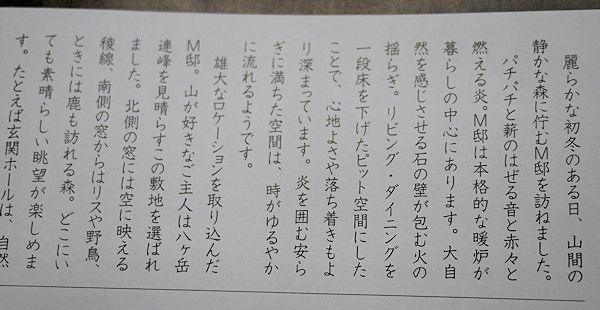 麗らかな初冬のある日、山間の
静かな森に佇むM邸を訪ねました。
パチパチと薪のはぜる音と赤々と
燃える炎。M邸は本格的な暖炉が
暮らしの中心にあります。大自
然を感じさせる石の壁が包む火の
揺らぎ。リビング・ダイニングを
一段床を下げたピット空間にした
ことで、心地よさや落ち着きもよ
り深まっています。炎を囲む安ら
ぎに満ちた空間は、時がゆるやか
に流れるようです。
雄大なロケーションを取り込んだ
M邸。山が好きなご主人は八ヶ岳
連峰を見晴らすこの敷地を選ばれ
ました。北側の窓には空に映える
稜線、南側の窓からはリスや野鳥、
ときには鹿も訪れる森。どこにい
ても素晴らしい眺望が楽しめま
す。たとえば玄関ホールは、自然